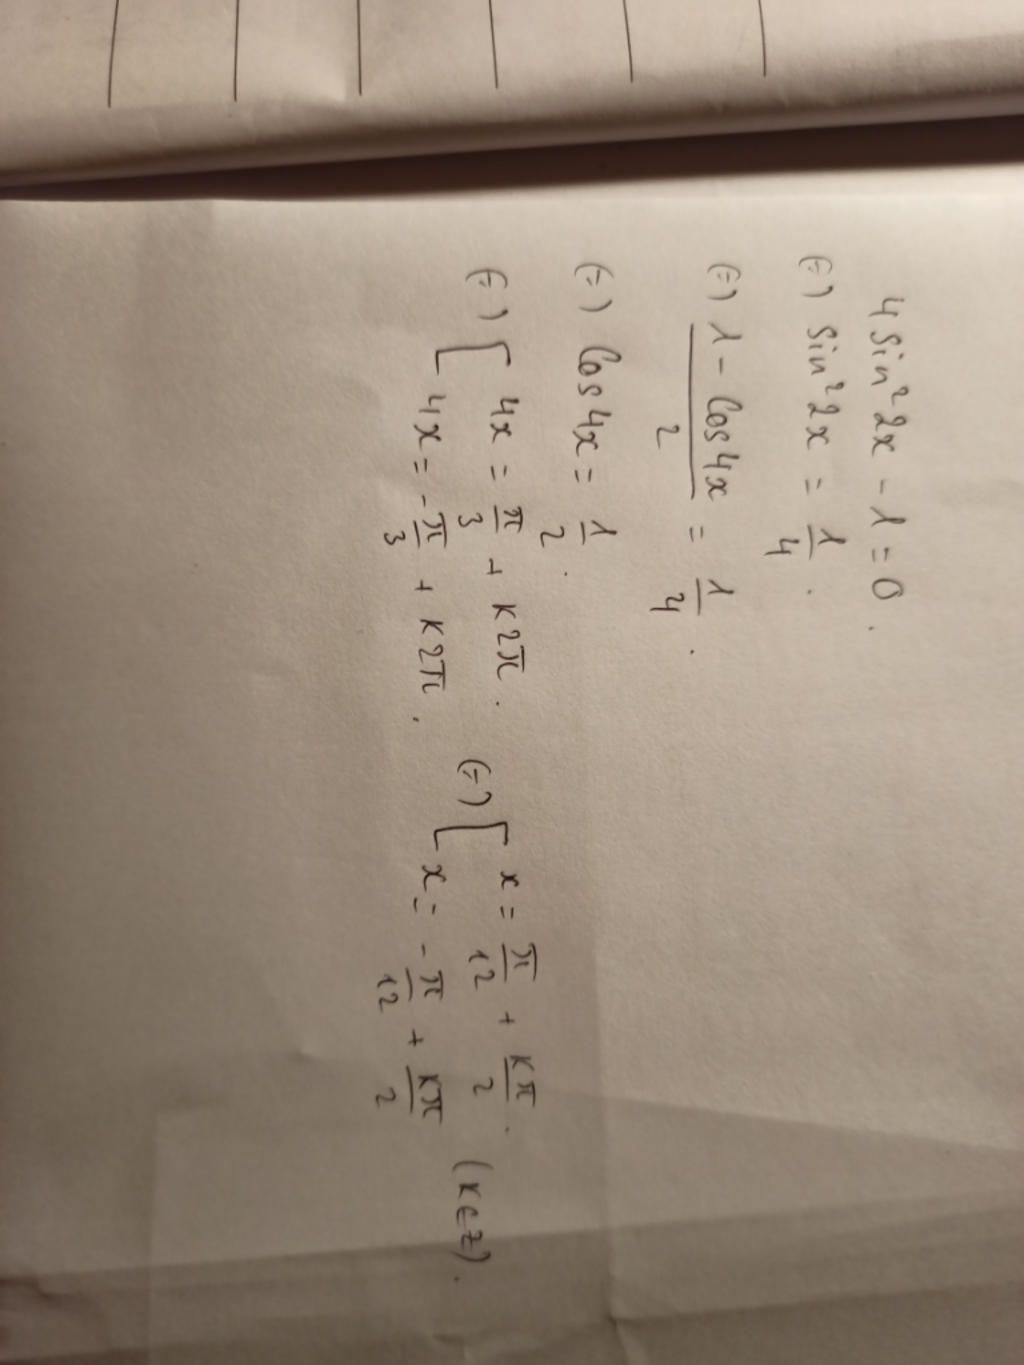 4 sin² 2x - 1 = 0.
(=) sin² 2x = 1/4.
(=) (1 - Cos 4x)/2 = 1/4.
(=) Cos 4x = 1/2.
(=) [ 4x = π/3 + k2π. (=) [ x = π/12 + kπ/2.
4x = -π/3 + k2π. x = -π/12 + kπ/2 (k∈Z).